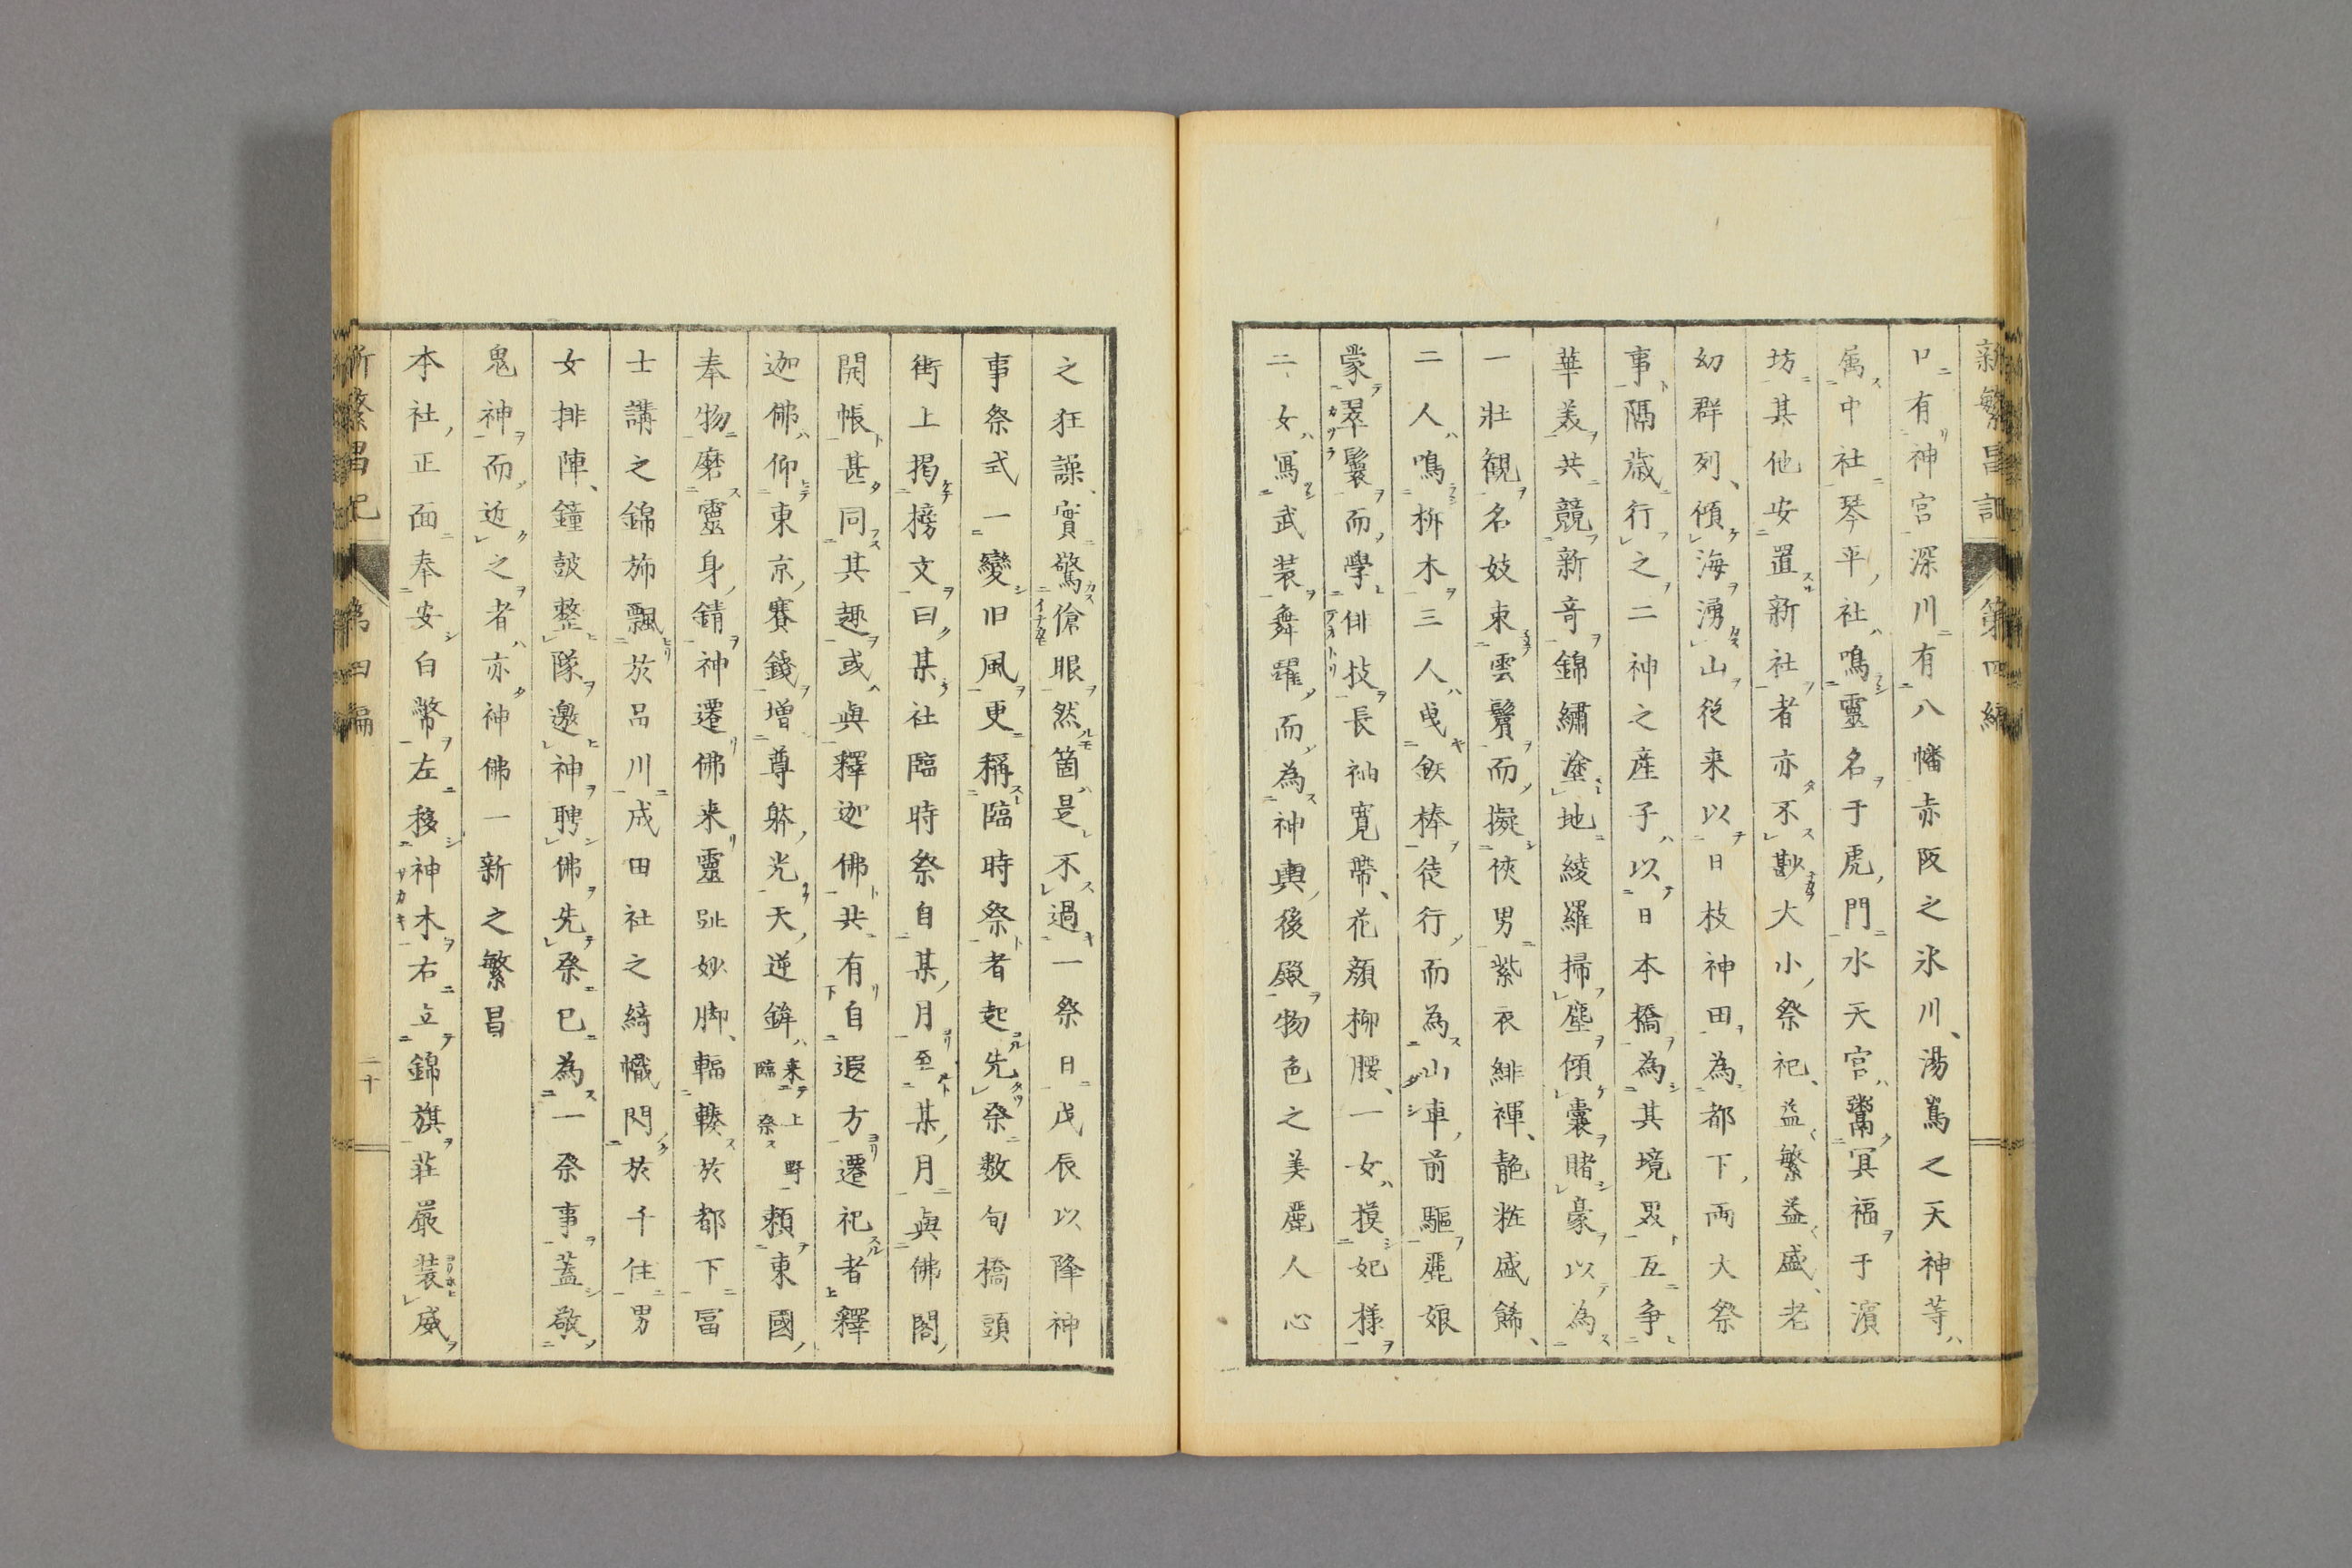 新繁昌記 第四編
卩有神宮深川有八幡赤阪之氷川、湯嶌之天神等
属中社琴平社鳴靈名于虎門水天宮鬻冥福于濱
坊其他安置新社者亦不尠大小祭祀、益繁益盛、老
幼群列、傾海湧山従来以日枝神田為都下両大祭
事隔歳行之二神之産子以日本橋為其境畧互争
華美共競新竒錦繡塗地綾羅掃塵傾囊賭豪以為
一壮観名妓束雲鬢而擬侠男紫衣緋褌、靘粧盛餙、
二人鳴柝木三人曵鉄棒徒行而為山車前驅麗娘
蒙翠鬟而學俳技長袖寛帶、花顔柳腰、一女摸妃様
二女寫武装舞躍而為神輿後殿物色之美麗人心
之狂譟、實驚傖眼然箇是不過一祭日戊辰以降神
事祭式一變旧風更稱臨時祭者起先祭数旬橋頭
街上掲榜文曰某社臨時祭自某月至某月與佛閣
開帳甚同其趣或與釋迦佛共有自遐方遷祀者釋
迦佛仰東京賽錢増尊躰光天逆鉾来臨上野祭頼東國
奉物磨靈身錆神遷佛来靈趾妙脚、輻輳於都下冨
士講之錦斾飄於品川成田社之綺幟閃於千住男
女排陣、鐘鼓整隊邀神聘佛先祭已為一祭事蓋敬
鬼神而近之者亦神佛一新之繁昌
本社正面奉安白幣左移神木右立錦旗荘嚴装威
新繁昌記 第四編 二十